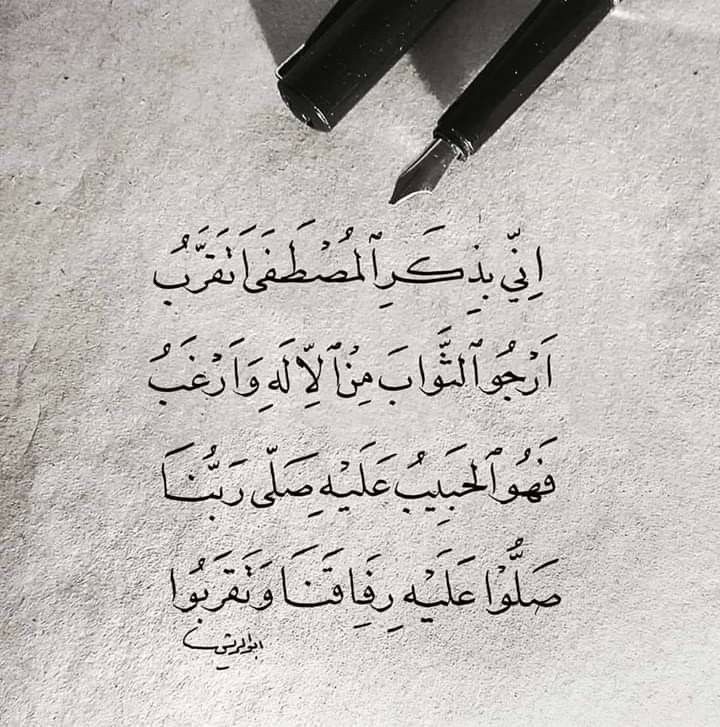 اِنِّي بِذِكَرِ ٱلمُصْطَفَى اَتَقَرَّبُ
اَرْجُو ٱلثَّوَابَ مِنْ ٱلاِّلَهِ وَاَرْغَبُ
فَهُو ٱلحَبِيبُ عَلَيْهِ صَلّى رَبُّنَا
صَلُّوْا عَلَيْهِ رِفَاقَنَا وَتَقَرَبُوا